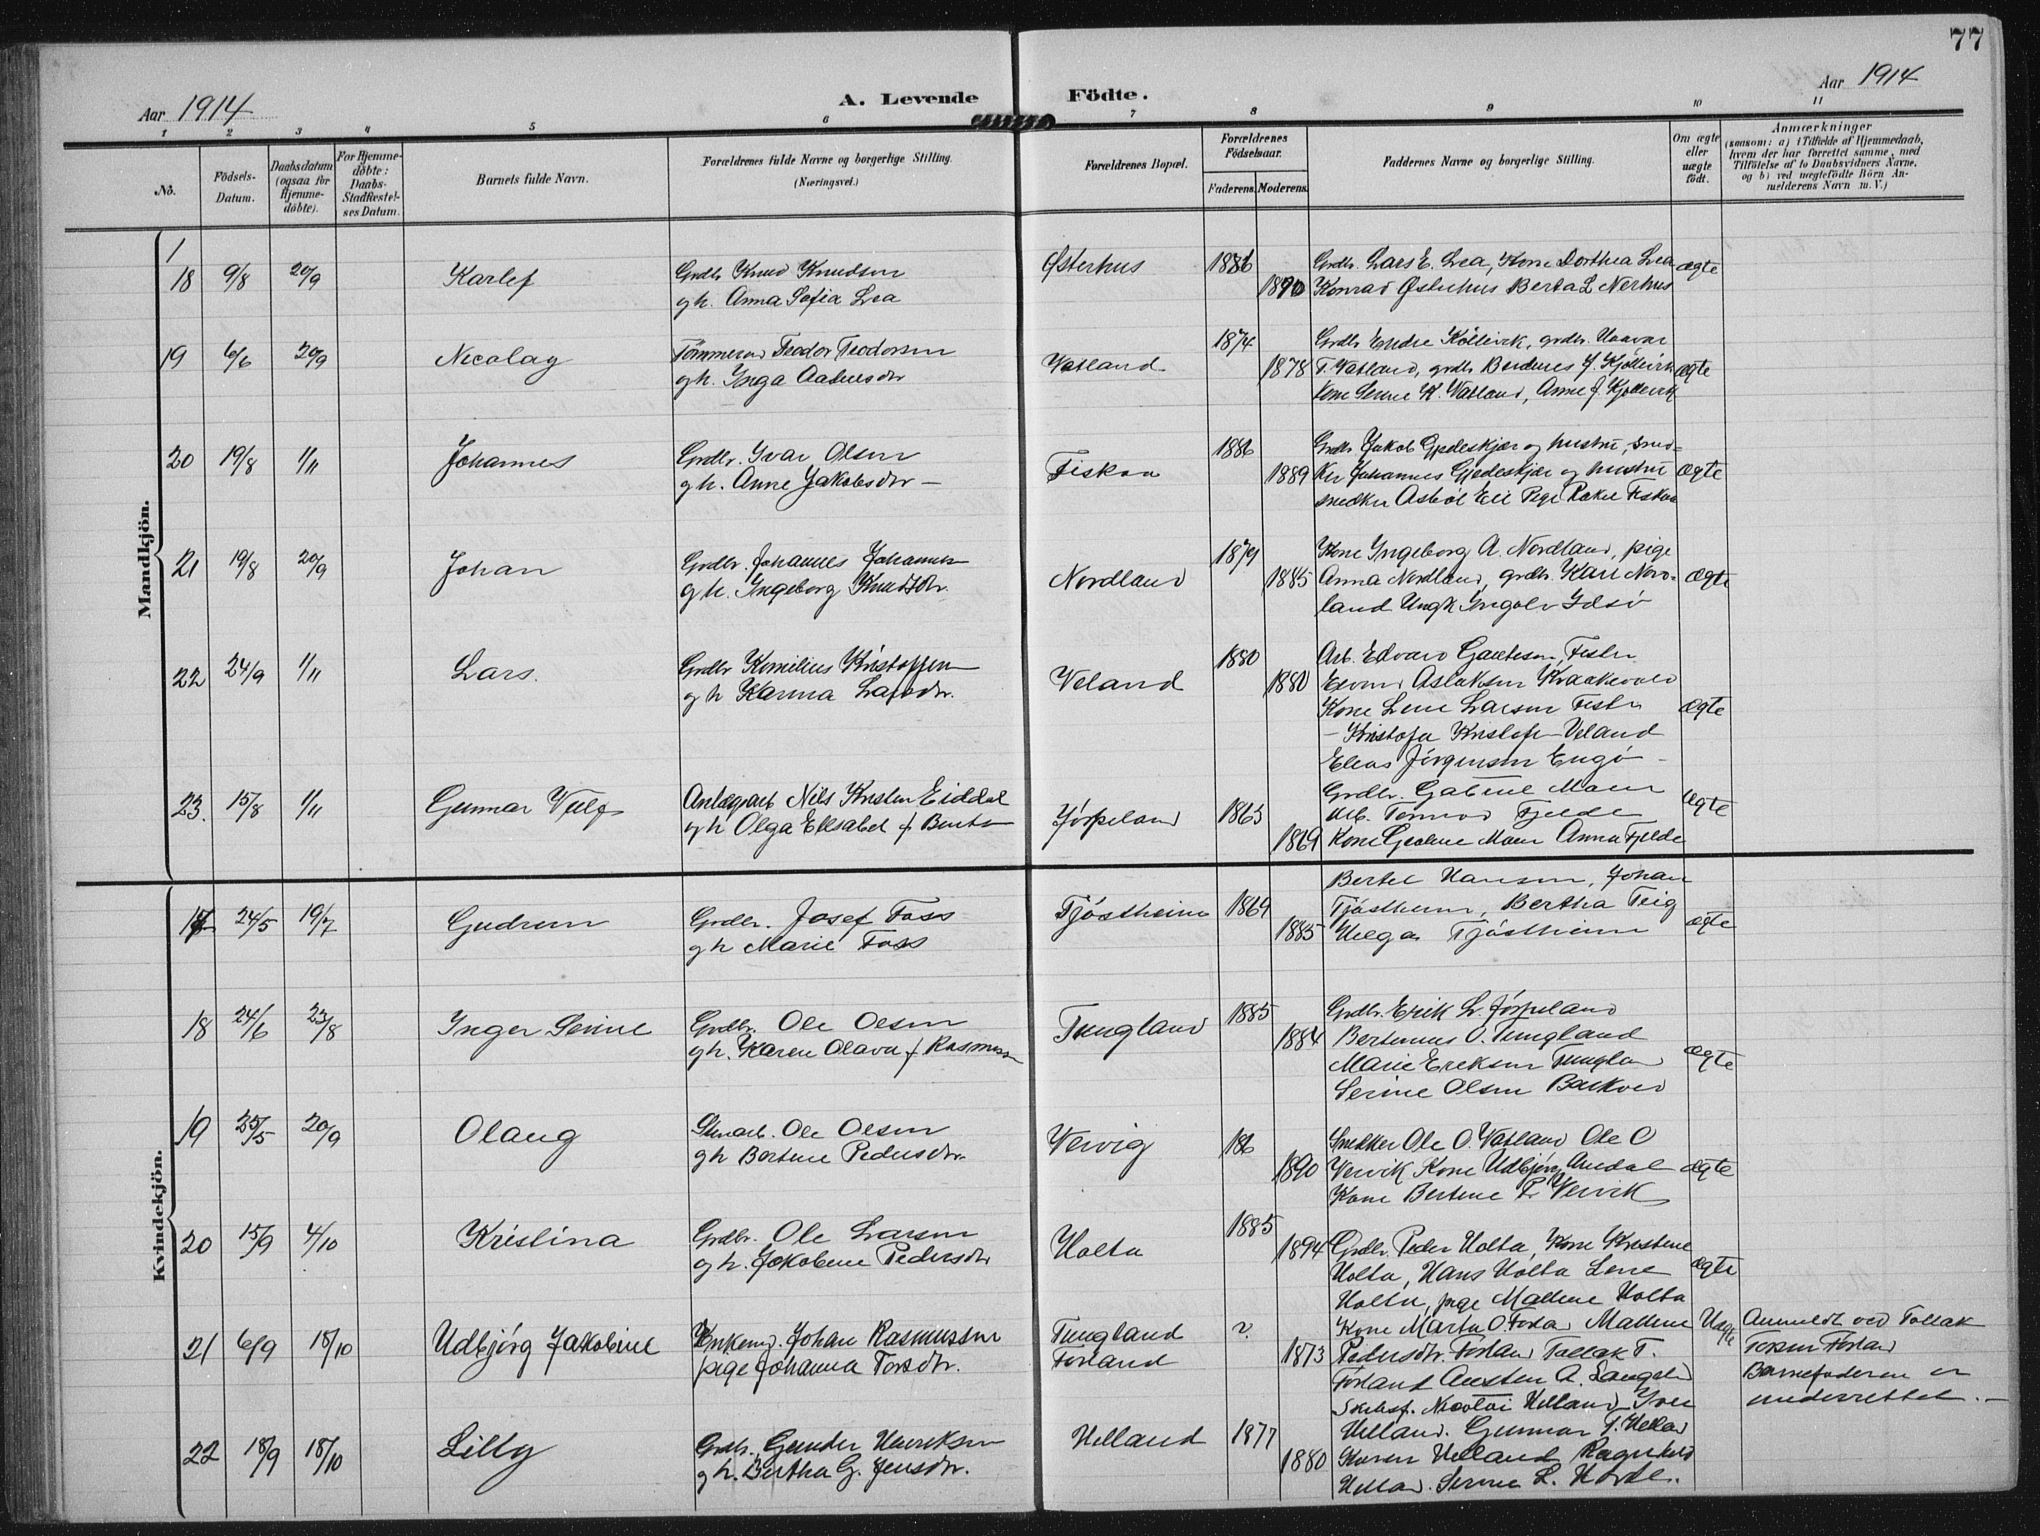 77
Aar 1914
A. Levende Födte.
Aar 1914
1 2 3 4 5 6 7 8 9 10 11
No.
Födsels-Datum.
Daabsdatum (ogsaa for Hjemme-døbte).
For Hjemme-døbte: Daabs-Stadfæstel-ses Datum.
Barnets fulde Navn.
Forældrenes fulde Navne og borgerlige Stilling.
(Næringsvei.)
Forældrenes Bopæl.
Forældrenes Fødselsaar.
Faderens. Moderens.
Faddernes Navne og borgerlige Stilling.
Om ægte eller uægte født.
Anmærkninger
(saasom: a) i Tilfælde af Hjemmedaab, hvem der har forrettet samme, med Tilføielse af to Daabsvidners Navne, og b) ved uægtefødte Börn An-melderens Navn m. V.)
Mandkjön.
18 9/8 20/9 Karlef Grdbr. Knud Knudsen Østerhus 1886 Grdbr. Lars E. Lea, Kone Dorthea Lea ægte
gh. Anna Sofia Lea 1890 Konrad Østerhus Berta L Nerhus
19 6/6 20/9 Nicolay Tømmermd Teodor Teodorsen Vatland 1874 Grdbr Endre
gh. Inga 1878 T. Vatland, grdbr ægte
Kone K. Vatland, Anne J. Kjølevik
20 19/8 1/11 Johannes Grdbr. Ivar Olsen Fiskaa 1886 Grdbr Jakob Gjedeskjær og hustru, sned-
gh. Anne Jakobsdtr 1889 ker Johannes Gjedeskjær og hustru ægte
snedker Pige Rakel Fiskaa
21 19/8 20/9 Johan Grdbr. Johannes Johannesen Nordland 1879 Kone Ingeborg A. Nordland, pige
gh. Ingeborg Knudsdtr. 1885 Anna Nordland, grdbr. Karl Nord- ægte
land Ungk Ingolv Idsø
22 24/9 1/11 Lars. Grdbr Kornelius Kristoffersen Veland 1880 Arb. Edvard Fister
gh Karina Larsdtr. 1880 Aslaksen
Kone Lene Larsen Fister ægte
- Kristofa Veland
Elias Jørgensen Engø
23. 15/8 1/11 Gunnar Anlægsarb Nils Kristen Eiddal Jørpeland 1863 Grdbr. Maen ægte
gh Olga Elisabet f Arb. Fjelde
1869 Kone Maen Anna Fjelde
Kvindekjön.
17 24/5 19/7 Gudrun Grdbr. Josef Foss Tjøstheim 1864 Bertel Hansen, Johan
gh Marie Foss Tjøstheim, Bertha Teig ægte
1885 Helga Tjøstheim
18 24/6 23/8 Inger Serine Grdbr. Ole Olsen Tungland 1885 Grdbr. Erik L. Jørpeland
gh. Karen Olava f Rasmussen 1884 Bertinius O. Tungland
Marie Eriksen Tungland ægte
Serine Olsen
19 25/5 20/9 Olaug Stenarb. Ole Olsen Vervig 186 Snedker Ole O. Vatland Ole O
gh Bertine Pedersdtr. 1890 Vervik Kone Udbjørg ægte
Kone Bertine P. Vervik
20 15/9 4/10 Kristina Grdbr. Ole Larsen Holta 1885
gh. Jakobine Pedersdtr 1894 Grdbr. Peder Holta, Kone Kristine
Holta, Hans Holta Lene ægte
Holta, pige Malene Holta
21 6/9 18/10 Udbjørg Jakobine Enkemd. Johan Rasmussen Tungland ? Kone Marta O. Malene Uægte Anmeldt ved Tollak
pige Johanna Torsdtr. Forland 1873 Pedersdtr. Forland Tollak T. Forland
Forland Austen A. Barnefaderen er
underrettet.
22 18/9 18/10 Lilly Grdbr. Gunder Henriksen Helland 1877 Nicolai Helland Iver
gh. Bertha G. Jensdtr. 1880 Helland. Gunnar T. Helland
Karen Helland Ragnhild
Helland. Serine L.